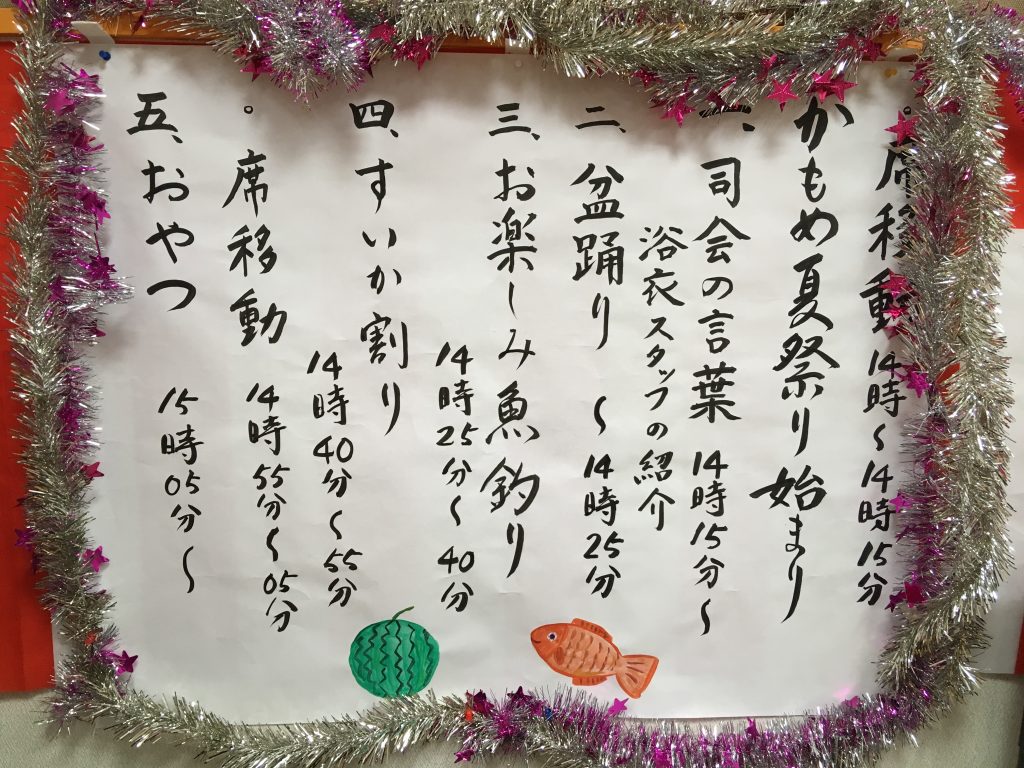 。席移動 14時〜14時15分
かもめ夏祭り始まり
一、司会の言葉 14時15分〜
浴衣スタッフの紹介
二、盆踊り 〜14時25分
三、お楽しみ魚釣り
14時25分〜40分
四、すいか割り
14時40分〜55分
。席移動 14時55分〜05分
五、おやつ 15時05分〜